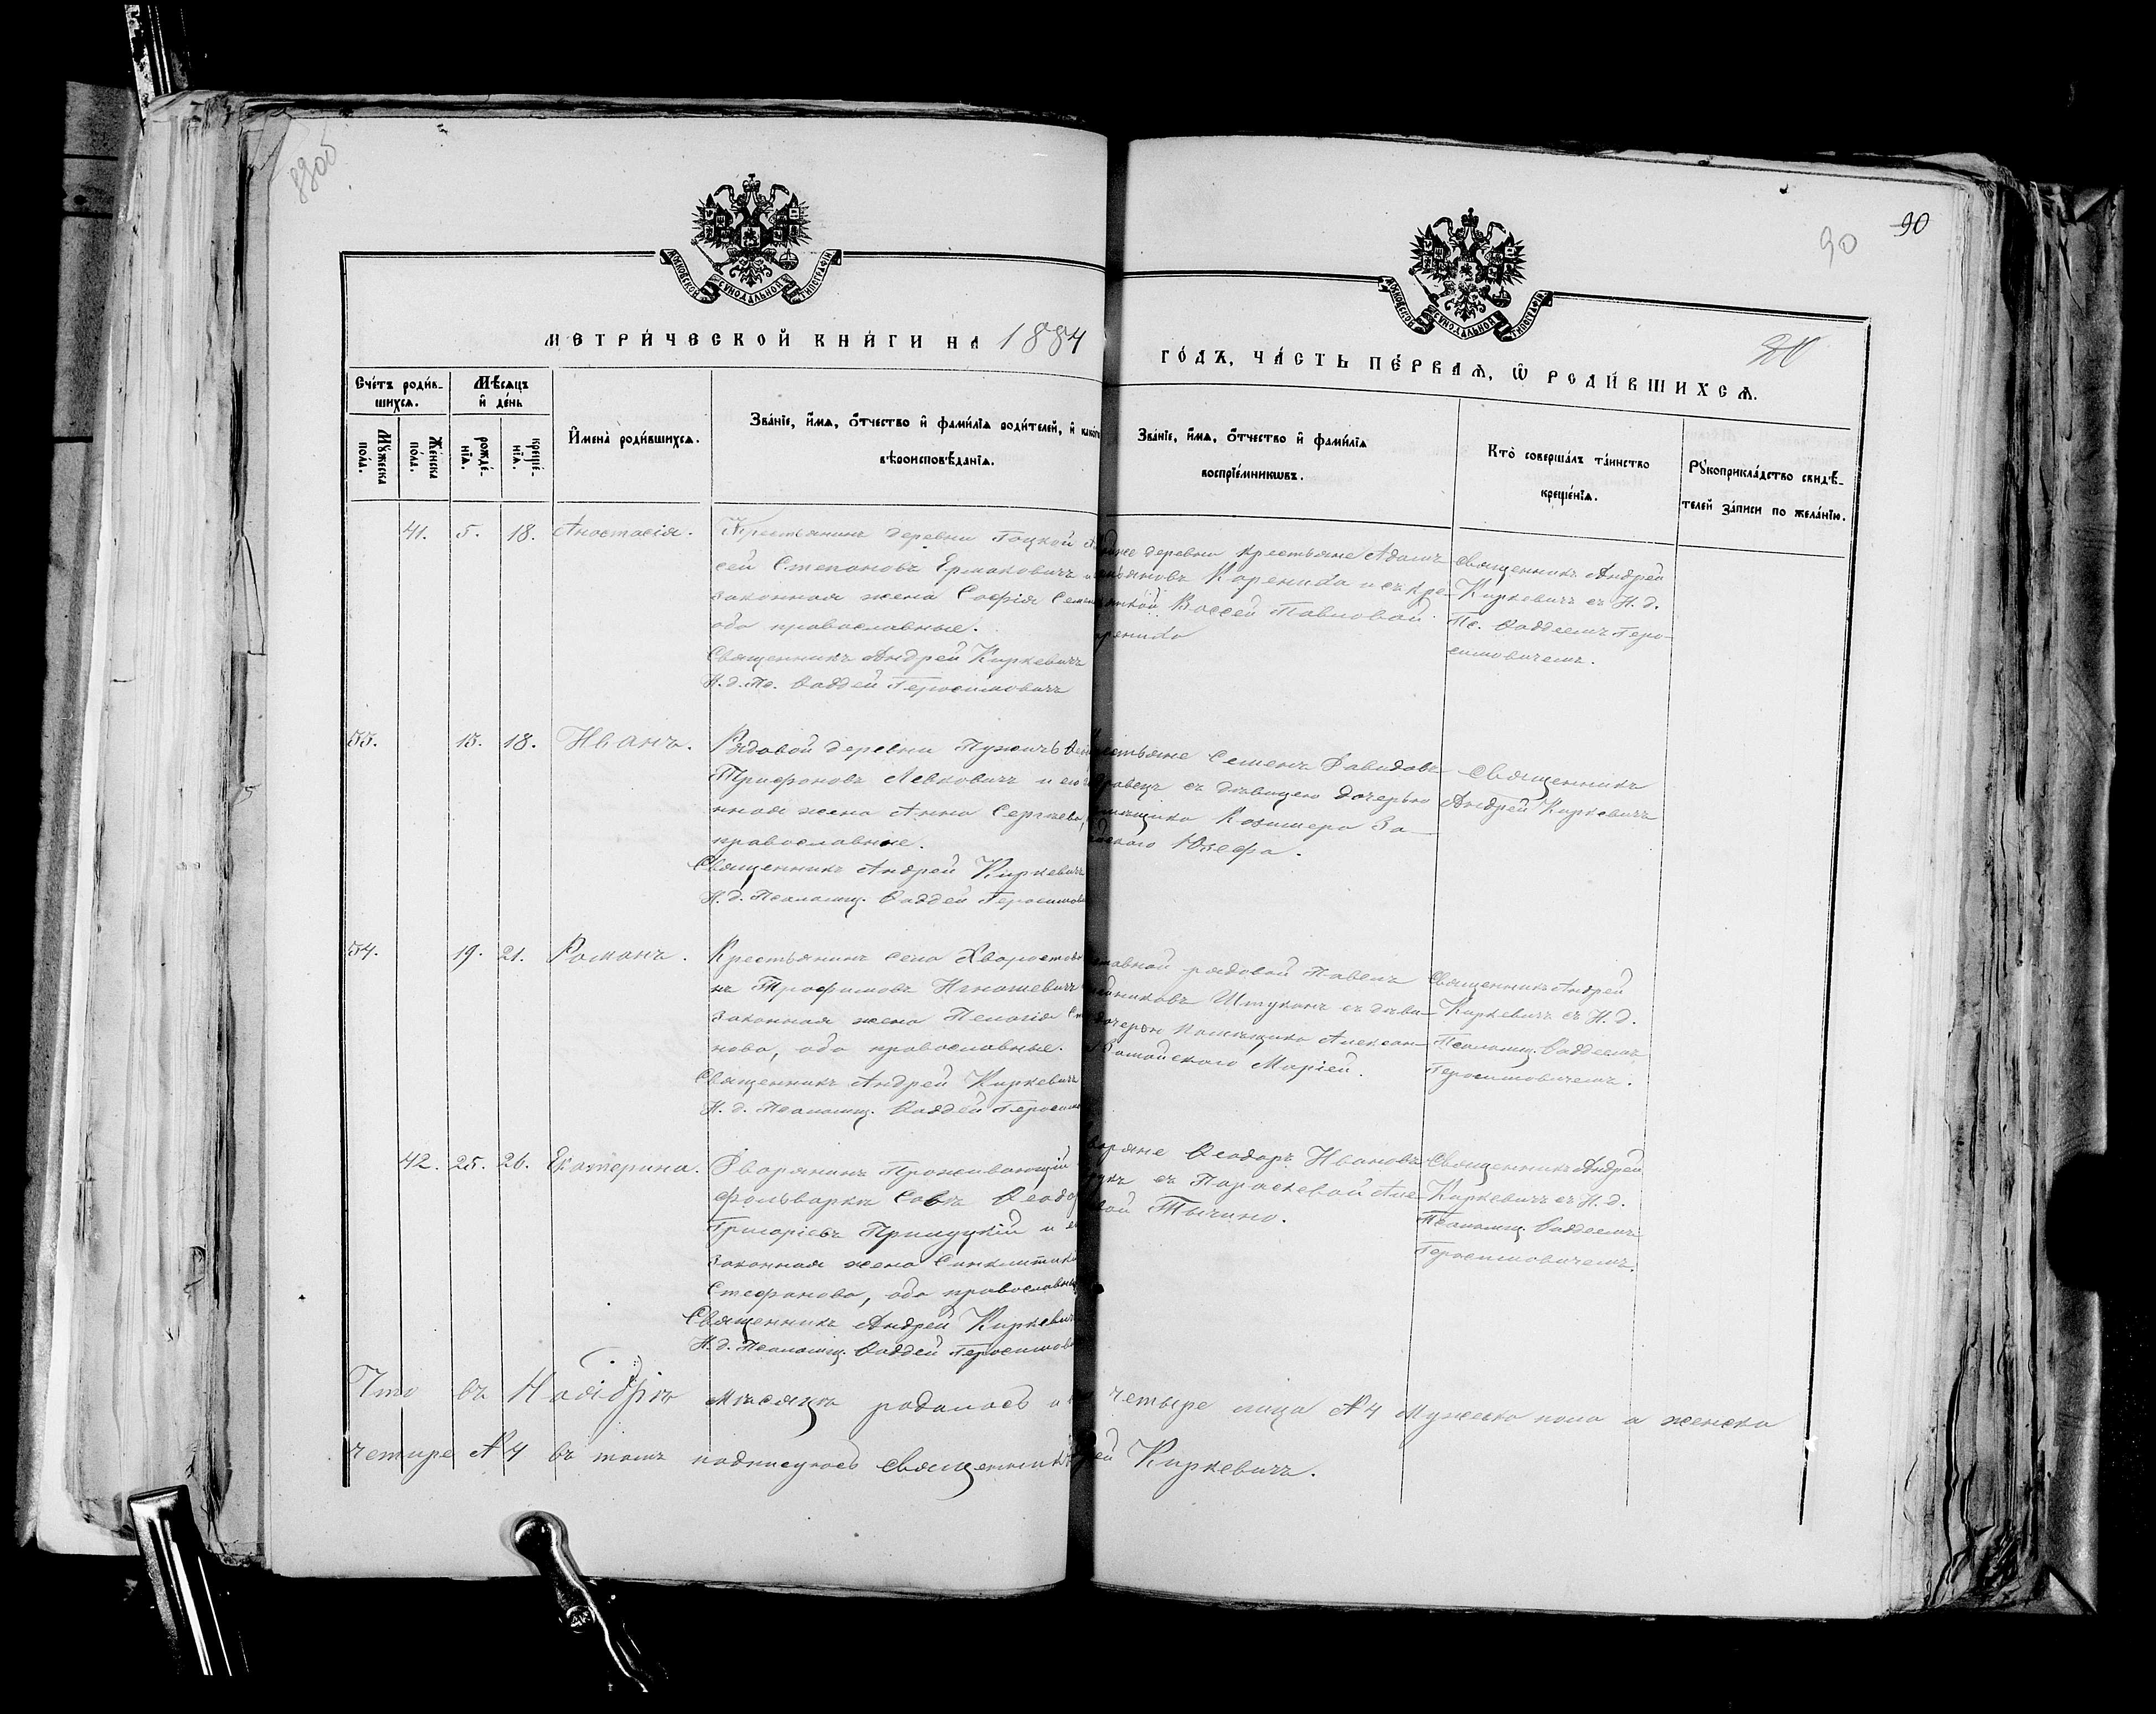 89об
90
90
МОСКОВСКОЙ СѴНОДАЛЬНОЙ ТИПОГРАФІИ
МОСКОВСКОЙ СѴНОДАЛЬНОЙ ТИПОГРАФІИ
МЕТРИ́ЧЕСКОЙ КНИ́ГИ НА 1884
ГО́ДЪ, ЧА́СТЬ ПЕ́РВАѦ, Ѡ РОДИ́ВШИХСѦ.
Сче́тъ роди́в-
шихсѧ.
Мꙋ́жеска
по́ла.
Же́нска
по́ла.
Мѣ́сѧцъ
и де́нь
рожде́-
нїѧ.
креще́-
нїѧ.
Имена̀ роди́вшихсѧ.
Зва́нїе, и́мѧ, о́тчество и фами́лїѧ роди́телей, и како́гѡ
вѣроисповѣ́данїѧ.
Зва́нїе, и́мѧ, о́тчество и фами́лїѧ
воспрїе́мникѡвъ.
Кто̀ соверша́лъ та́инство
креще́нїѧ.
Рꙋкоприкла́дство свидѣ́-
телей за́писи по жела́нїю.
41. 5. 18. Анастасія.
Крестьянинъ деревни Гоцкой
сей Степановъ Ермаковичъ и
законная жена Софія Семен
оба православные.
Священникъ Андрей Киркевичъ
И. д. Пс. Ѳаддей Герасимовичъ
же деревни крестьяне Адамъ
Кореника и съ кре-
Вассой Павловой
реника
Священникъ Андрей
Киркевичъ съ И. д.
Пс. Ѳаддеемъ Гера-
симовичемъ.
55. 15. 18. Иванъ.
Рядовой деревни Пузичъ
Трифоновъ Левковичъ и его
нная жена Анна Сергѣева,
православные.
Священникъ Андрей Киркевичъ
И. д. Псаломщ. Ѳаддей Герасимов
естьяне Семенъ Давидовъ
съ дѣвицею дочерью
мѣщика Козимера За-
скаго Юзефа.
Священникъ
Андрей Киркевичъ
54. 19. 21. Романъ.
Крестьянинъ села Хворостова
нъ Трофимовъ Игнашевичъ
законная жена Пелагія
нова, оба православные.
Священникъ Андрей Киркевичъ
И. д. Псаломщ. Ѳаддей Герасим
тавной рядовой Павелъ
Штуканъ съ дѣви-
дочерью Помѣщика Алексан-
Маріей.
Священникъ Андрей
Киркевичъ съ И. д.
Псаломщ. Ѳаддеемъ
Герасимовичемъ.
42. 25. 26. Екатерина.
Дворянинъ Проживающій
фольваркѣ Ѳеодо
Григоріевъ Прилуцкій и е
законная жена Синклитикі
Стефанова, оба православны
Священникъ Андрей Киркевич
И. д. Псаломщ. Ѳаддей Герасимов
оряне Ѳеодоръ Ивановъ
съ Параскевой Але-
вой Тычино.
Священникъ Андрей
Киркевичъ съ И. д.
Псаломщ. Ѳаддеемъ
Герасимовичемъ.
Что въ Ноябрѣ мѣсяцѣ родилось четыре лица № 4 Мужеска пола а женска
четыре № 4 въ томъ подписуюсь священникъ рей Киркевичъ.